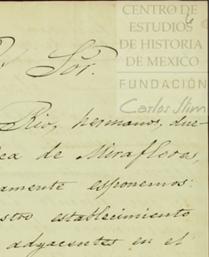 CENTRO DE
ESTUDIOS
DE HISTORIA
DE MEXICO
FUNDACIÓN
Carlos Slim
Sór.
Rio, hermanos, due-
de Miraflores,
amente esponemos:
stro establecimiento
adyacentes en el